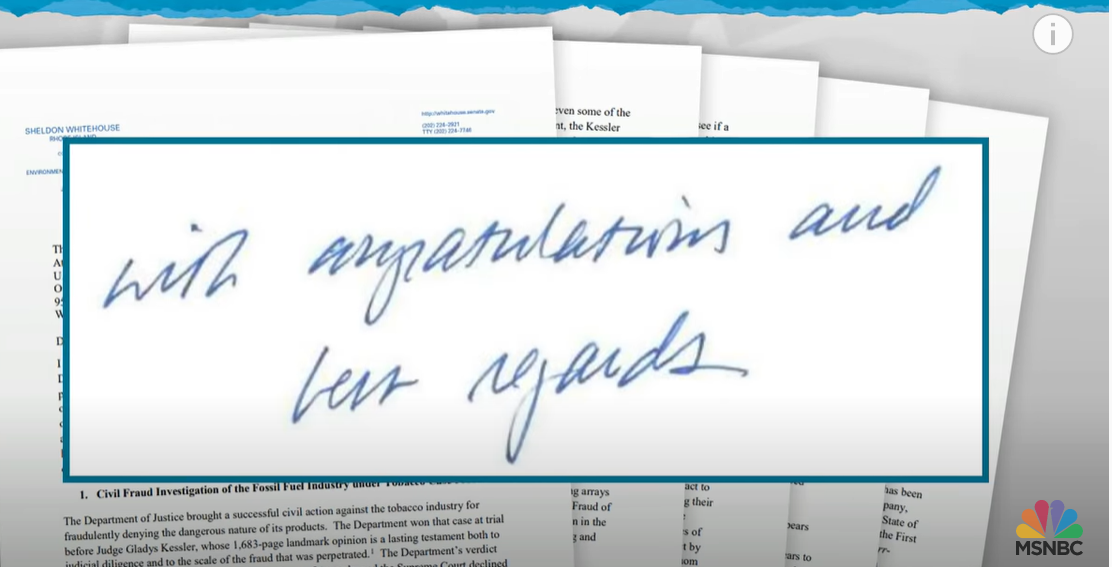 SHELDON WHITEHOUSE
RHODE ISLAND
ENVIRONMEN
http://whitehouse.senate.gov
(202) 224-2921
TTY (202) 224-7746
even some of the
nt, the Kessler
see if a
with congratulations and
best regards
Th
At
U.
O
95
W
D
1. Civil Fraud Investigation of the Fossil Fuel Industry under Tobacco
The Department of Justice brought a successful civil action against the tobacco industry for
fraudulently denying the dangerous nature of its products. The Department won that case at trial
before Judge Gladys Kessler, whose 1,683-page landmark opinion is a lasting testament both to
judicial diligence and to the scale of the fraud that was perpetrated.¹ The Department's verdict
the Supreme Court declined
ng arrays
Fraud of
n in the
g and
act to
g their
s of
t by
om
pears
ars to
has been
pany,
State of
the First
rr-
i
MSNBC